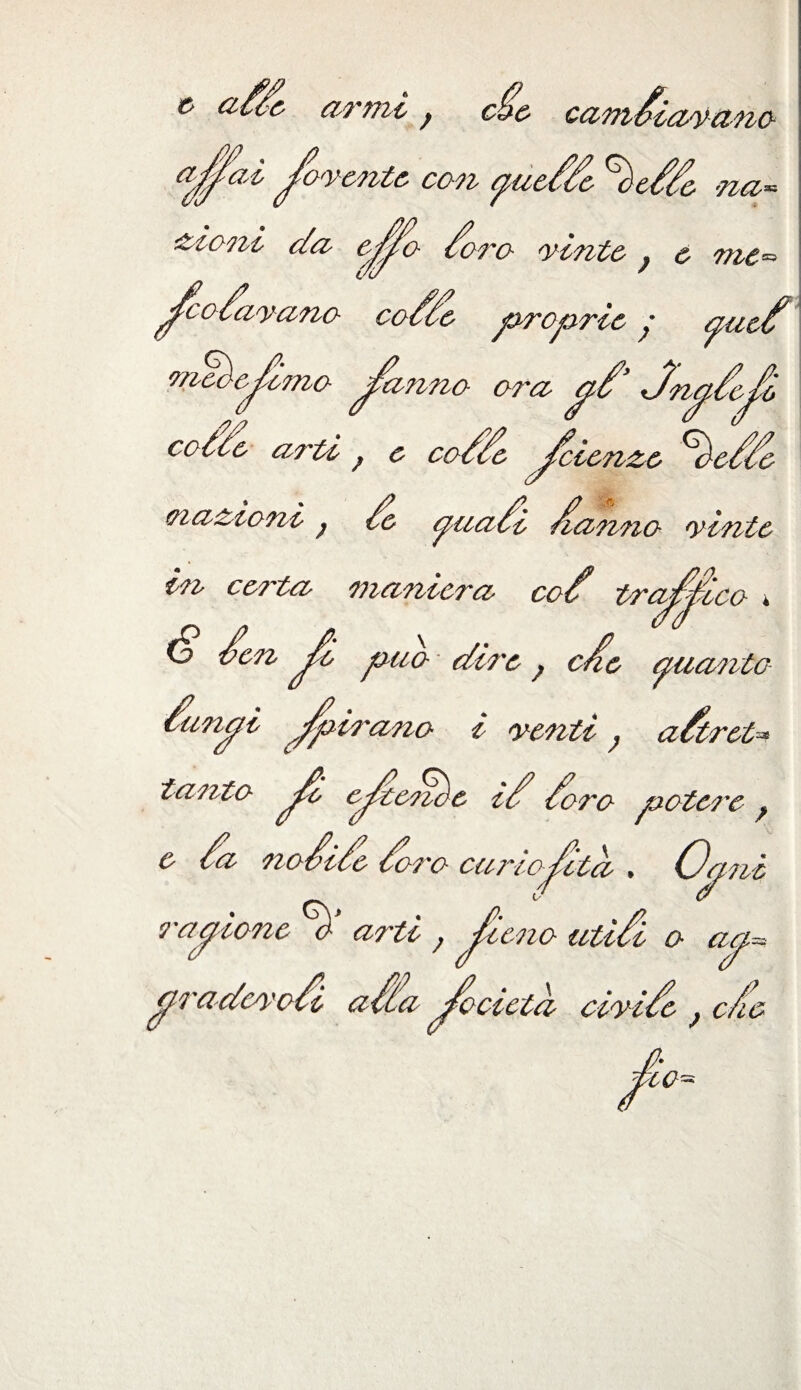 e alle armi, che cambiavano
assai sovente con quelle delle na=
zioni da esso loro vinte, e me=
scolavano colle proprie; quel
medesimo fanno ora gl' Inglesi
colle arti, e colle scienze delle
nazioni, le quali hanno vinte
in certa maniera col traffico.
E ben si può dire, che quanto
lungi spirano i venti, altret=
tanto si estende il loro potere,
e la nobile loro curiosità. Ogni
ragione d' arti, sieno utili o ag=
gradevoli alla società civile, che
fio=